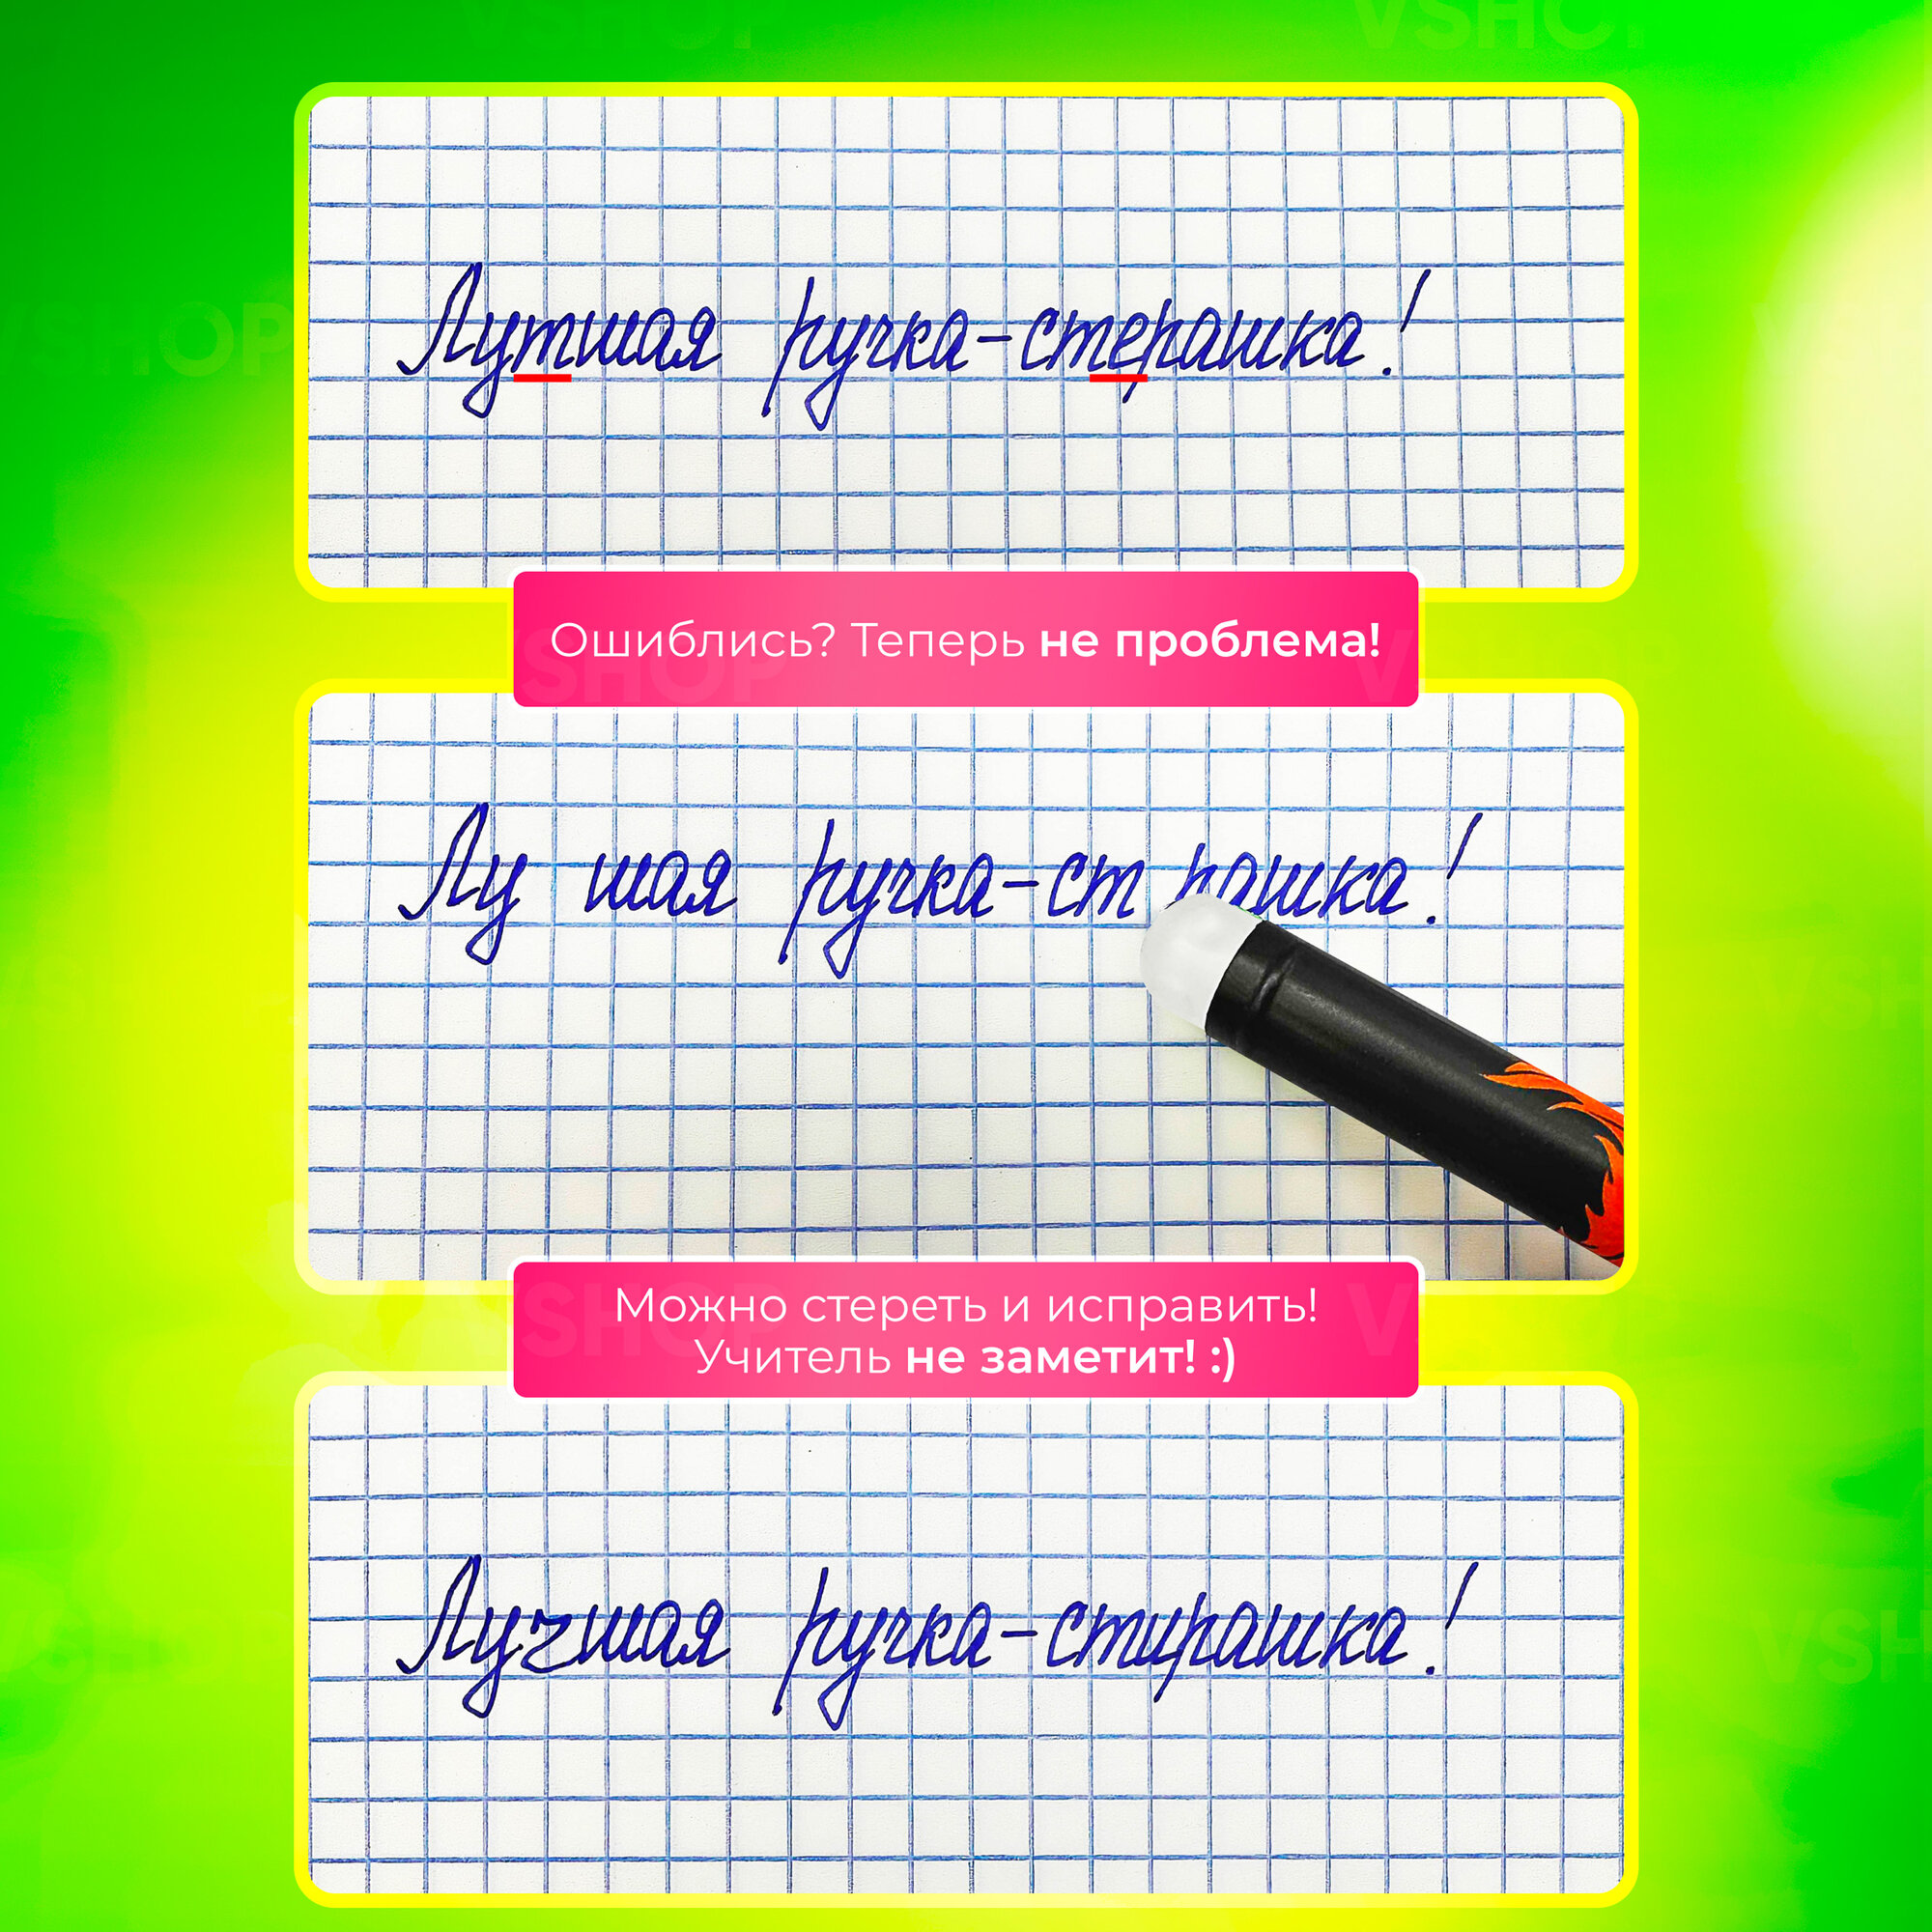 VSHOP
VSHOP
Лутшая ручка-стерашка!
Ошиблись? Теперь не проблема!
Лу шая ручка-ст рашка!
Можно стереть и исправить!
Учитель не заметит! :)
Лучшая ручка-стирашка!